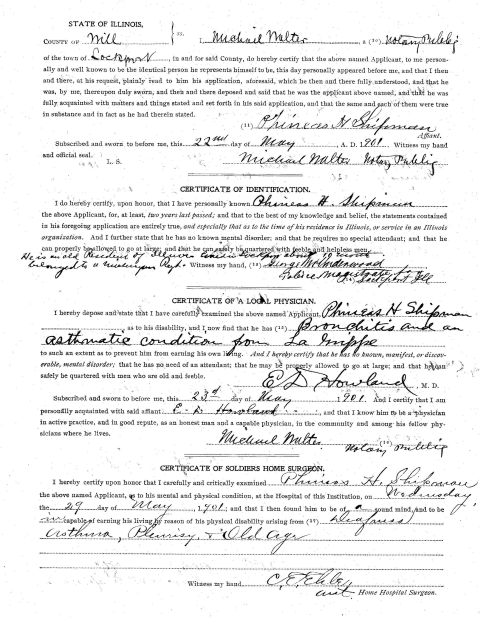 STATE OF ILLINOIS,
COUNTY OF Will } ss. I, Michael Walter a (10) Notary Public
of the town of Lockport, in and for said County, do hereby certify that the above named Applicant, to me person-
ally and well known to be the identical person he represents himself to be, this day personally appeared before me, and that I then
and there, at his request, plainly read to him his application, aforesaid, which he then and there fully understood, and that he
was, by me, thereupon duly sworn, and then and there deposed and said that he was the applicant above named, and that he was
fully acquainted with matters and things stated and set forth in his said application, and that the same and each of them were true
in substance and in fact as he had therein stated.
(11) Phineas H Shipman
Affiant.
Subscribed and sworn to before me, this 22nd day of May, A. D. 1901. Witness my hand
and official seal. L. S. Michael Walter Notary Public
CERTIFICATE OF IDENTIFICATION.
I do hereby certify, upon honor, that I have personally known Phineas H. Shipman
the above Applicant, for, at least, two years last passed; and that to the best of my knowledge and belief, the statements contained
in his foregoing application are entirely true, and especially that as to the time of his residence in Illinois, or service in an Illinois
organization. And I further state that he has no known mental disorder; and that he requires no special attendant; and that he
can properly be allowed to go at large; and that he can safely be quartered with feeble and helpless men.
He is an old Resident of Illinois Lockport about
belonged to a Regt. Witness my hand, (12) George M. Underwood
Police Magistrate Lockport Ill
CERTIFICATE OF A LOCAL PHYSICIAN.
I hereby depose and state that I have carefully examined the above named Applicant, Phineas H Shipman
as to his disability, and I now find that he has (13) Bronchitis and an
asthmatic condition from La Grippe
to such an extent as to prevent him from earning his own living. And I hereby certify that he has no known, manifest, or discov-
erable, mental disorder; that he has no need of an attendant; that he may be properly allowed to go at large; and that he can
safely be quartered with men who are old and feeble.
E D Howland, M. D.
Subscribed and sworn to before me, this 23d day of May, 1901. And I certify that I am
personally acquainted with said affiant E. D. Howland, and that I know him to be a physician
in active practice, and in good repute, as an honest man and a capable physician, in the community and among his fellow phy-
sicians where he lives.
Michael Walter Notary Public
CERTIFICATE OF SOLDIERS HOME SURGEON.
I hereby certify upon honor that I carefully and critically examined Phineas H. Shipman
the above named Applicant, as to his mental and physical condition, at the Hospital of this Institution, on Wednesday,
the 29 day of May 1901; and that I then found him to be of a sound mind, and to be
capable of earning his living by reason of his physical disability arising from (17) Deafness
Asthma, Pleurisy, & Old Age
Witness my hand,
asst. Home Hospital Surgeon.